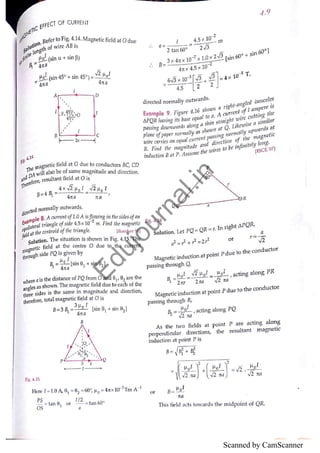 4.9
MAGNETIC EFFECT OF CURRENT
Solution. Refer to Fig. 4.14. Magnetic field at O due
length of wire AB is
B₁ = μ₀I/4πa (sin α + sin β)
= μ₀I/4πa (sin 45° + sin 45°) = √2 μ₀I/4πa
A
D
B
C
2a
Fig. 4.14
The magnetic field at O due to conductors BC, CD
and DA will also be of same magnitude and direction.
Therefore, resultant field at O is
B = 4 B₁ = 4 × √2 μ₀I/4πa = √2 μ₀I/πa
directed normally outwards.
Example 8. A current of 1.0 A is flowing in the sides of an
equilateral triangle of side 4.5 × 10⁻² m. Find the magnetic
field at the centroid of the triangle.
Solution. The situation is shown in Fig. 4.15. The
magnetic field at the centre O due to the current
through side PQ is given by
B₁ = μ₀I/4πa [sin θ₁ + sin θ₂]
where a is the distance of PQ from O and θ₁, θ₂ are the
angles as shown. The magnetic field due to each of the
three sides is the same in magnitude and direction,
therefore, total magnetic field at O is
B = 3 B₁ = 3μ₀I/4πa [sin θ₁ + sin θ₂]
R
O
P
S
Q
Fig. 4.15
Here I = 1.0 A, θ₁ = θ₂ = 60°, μ₀ = 4π × 10⁻⁷ Tm A⁻¹
PS/OS = tan θ₁ or l/2/a = tan 60°
∴ a = l/2 tan 60° = 4.5 × 10⁻²/2√3 m
∴ B = 3 × 4π × 10⁻⁷ × 1.0 × 2√3/4π × 4.5 × 10⁻² [sin 60° + sin 60°]
= 6√3 × 10⁻⁵/4.5 [√3/2 + √3/2] = 4 × 10⁻⁵ T,
directed normally outwards.
Example 9. Figure 4.16 shows a right-angled isosceles
ΔPQR having its base equal to a. A current of I ampere is
passing downwards along a thin straight wire cutting the
plane of paper normally as shown at Q. Likewise a similar
wire carries an equal current passing normally upwards at
R. Find the magnitude and direction of the magnetic
induction B at P. Assume the wires to be infinitely long.
[ISCE 97]
Solution. Let PQ = QR = r. In right ΔPQR,
a² = r² + r² = 2r² or r = a/√2
Magnetic induction at point P due to the conductor
passing through Q,
B₁ = μ₀I/2πr = √2 μ₀I/2πa = μ₀I/√2 πa, acting along PR
Magnetic induction at point P due to the conductor
passing through R,
B₂ = μ₀I/√2 πa, acting along PQ
As the two fields at point P are acting along
perpendicular directions, the resultant magnetic
induction at point P is
B = √B₁² + B₂²
= √(μ₀I/√2 πa)² + (μ₀I/√2 πa)² = √2 · μ₀I/√2 πa
or B = μ₀I/πa
This field acts towards the midpoint of QR.
edujournal.in
Scanned by CamScanner